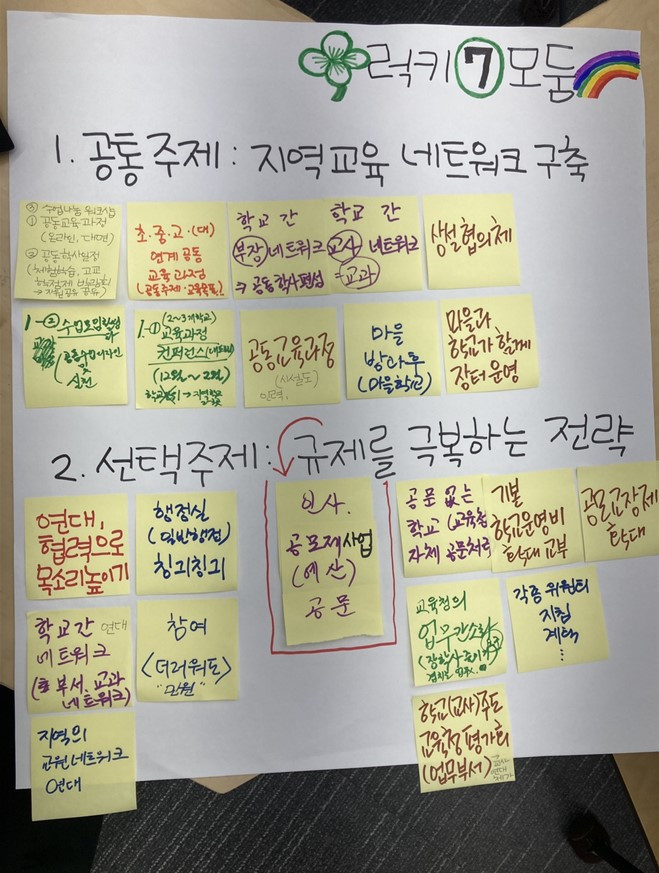 럭키 7 모둠
1. 공동주제 : 지역교육 네트워크 구축
③ 수업나눔 워크샵
① 공동교육과정
(온라인, 대면)
② 공동학사일정
(체험학습, 고교
초·중·고·(대)
연계 공동
교육과정
(공동주제·교육목표..)
학교 간
부장 네트워크
→ 공동학사편성
학교 간
교사 네트워크
교과
생활협의체
1-② 수업모임활성화
(공동수업디자인
및
실천
1-① (2~3개학교)
교육과정
컨퍼런스(네트워크)
(12월~2월)
공동교육과정
(시설도)
인력,
마을
방과후
(마을학교)
마을과
학교가 함께
장터 운영
2. 선택주제 : 규제를 극복하는 전략
연대,
협력으로
목소리높이기
행정실
(일반행정)
칭긔칭긔
인사.
공모제사업
(예산)
공문
공문 없는
학교 (교육청
자체 공문처리
기본
학교운영비
확대 교부
공모교장제
확대
학교간 연대
네트워크
(부서, 교과
네트워크)
참여
(더러워도)
"민원"
교육청의
업무간소화
각종 위원회
지침
계획
...
지역의
교원네트워크
연대
학교(교사)주도
교육청 평가회
(업무부서)